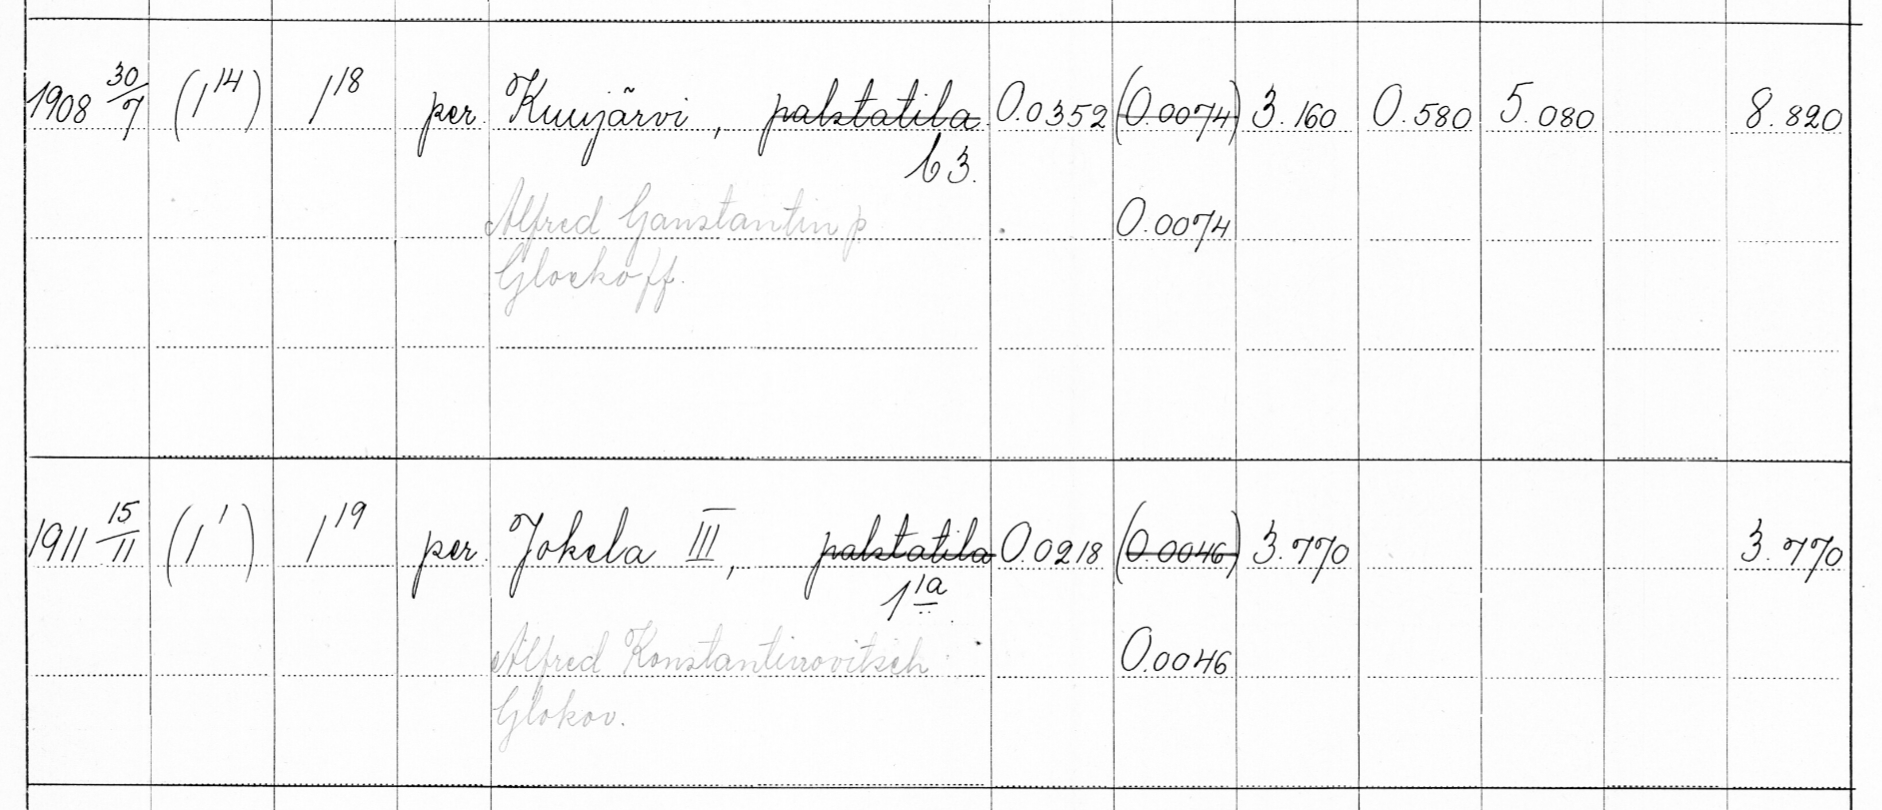 1908 30/7 (1^14) 1^18 per. Kuujärvi, palstatila 0.0352 (0.0074) 3.160 0.580 5.080 8.820
b 3.
Alfred Ganstantin p 0.0074
Glockoff.
1911 15/11 (1^1) 1^19 per. Jokela III, palstatila 0.0218 (0.0046) 3.770 3.770
1^1a
Alfred Konstantinovitsch 0.0046
Glokov.